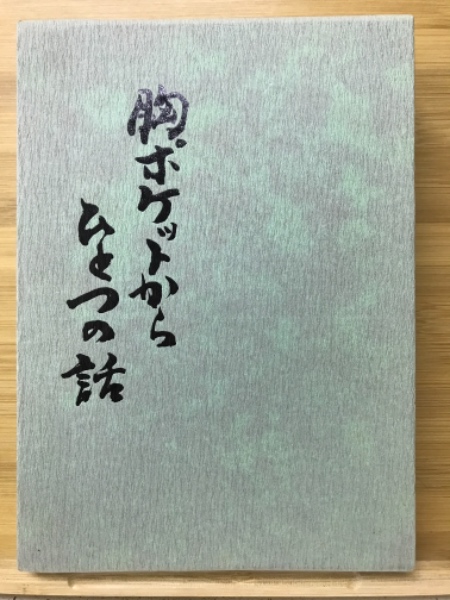 胸ポケットから
ひとつの話